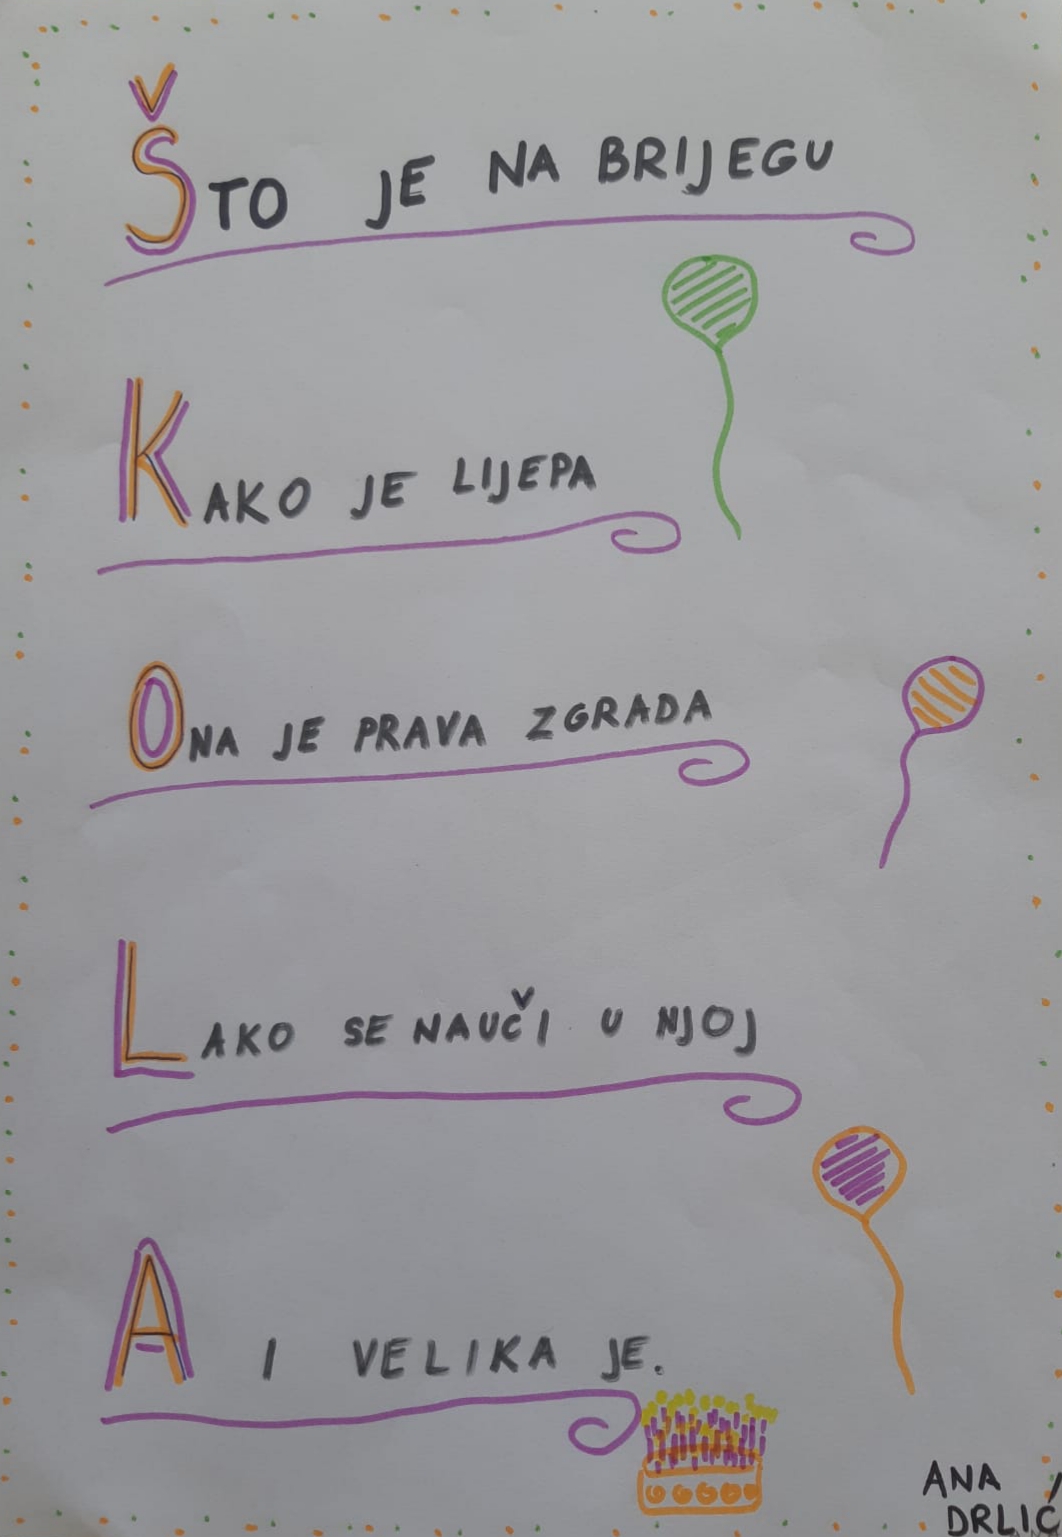 ŠTO JE NA BRIJEGU
KAKO JE LIJEPA
ONA JE PRAVA ZGRADA
LAKO SE NAUČI U NJOJ
A I VELIKA JE.
ANA
DRLIĆ